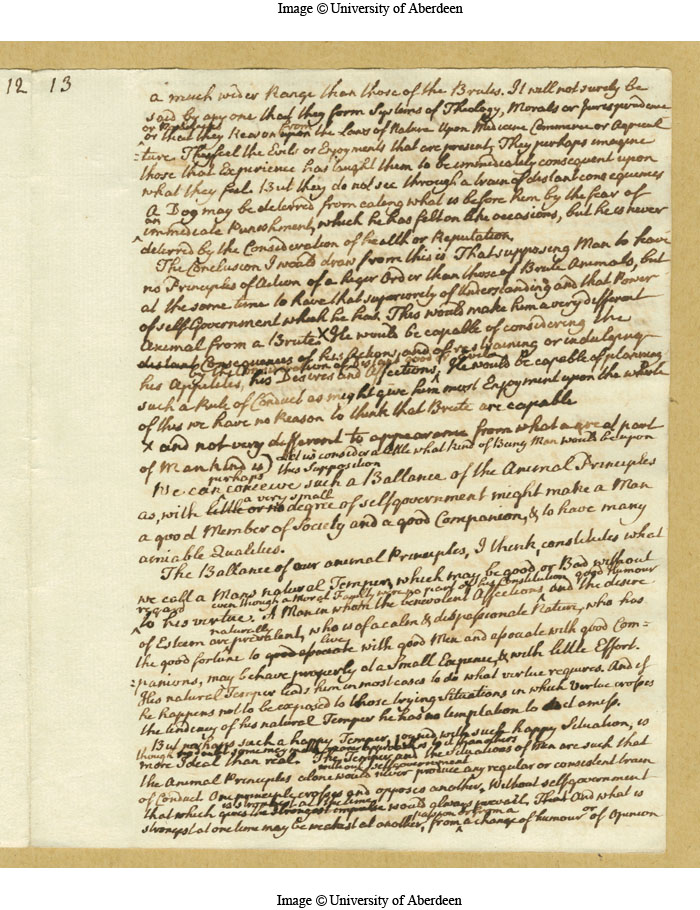 Image © University of Aberdeen
12 13
a much wider Range than those of the Brutes. It will not surely be
said by any one that they form Systems of Theology, Morals or Jurisprudence
or that they Reason upon the Laws of Nature Upon Medicine Commerce or Agricul
=ture. They feel the Evils or Enjoyments that are present, They perhaps imagine
those that Experience has taught them to be immediately consequent upon
what they feel But they do not see through a train of distant consequences
A Dog may be deterred from eating what is before him by the fear of
an
immediate Punishment, which he has felt on like occasions, but he is never
deterred by the Consideration of health or Reputation.
The Conclusion I would draw from this is That supposing Man to have
no Principles of Action of a higer Order than those of Brute Animals, but
at the same time to have that superiority of Understanding and that Power
of self Government which he hath. This would make him a very different
Animal from a Brute X He would be capable of considering the
distant Consequences of his Actions, and of restraining or indulging
his Appetites, his Desires and Affections, He would be capable of planning
such a Rule of Conduct as might give him most Enjoyment upon the whole
of this we have no Reason to think that Brute are capable
X and not very different to appearance from what a great part
of Mankind is) Let us consider a little what kind of Being Man would be upon
this Supposition
perhaps
We can conceive such a Ballance of the Animal Principles
a very small
as, with little or no degree of selfgovernment might make a Man
a good Member of Society and a good Companion, & to have many
amiable Qualities.
The Ballance of our animal Principles, I think, constitutes what
we call a Mans natural Temper, which may be good or Bad without
regard even though a Moral Faculty were no part of his Constitution good Humour
to his virtue. A Man in whom the benevolent Affections and the desire
of Esteem are prevalent, who is of a calm & dispassionate Nature, who has
naturally
live
the good fortune to good associate with good Men and associate with good Com-
=panions, may behave properly at a Small Expence, & with little Effort.
His natural Temper leads him in most cases to do what virtue requires. And if
he happens not to be exposed to those trying Situations in which Virtue crosses
the tendency of his natural Temper he has no temptation to act amiss.
But perhaps such a happy Temper, joyned with such happy Situation, is
though
more Ideal than real. The Temper and the situations of Men are such that
without selfgovernment
the Animal Principles alone would never produce any regular or consistent train
of Conduct. One principle crosses and opposes another. Without selfgovernment
is strongest at the time
that which gives the strongest impulse would always prevail. And what is
passion or from a
strongest at one time may be weakest at another, from a change of humour or of Opinion
Image © University of Aberdeen